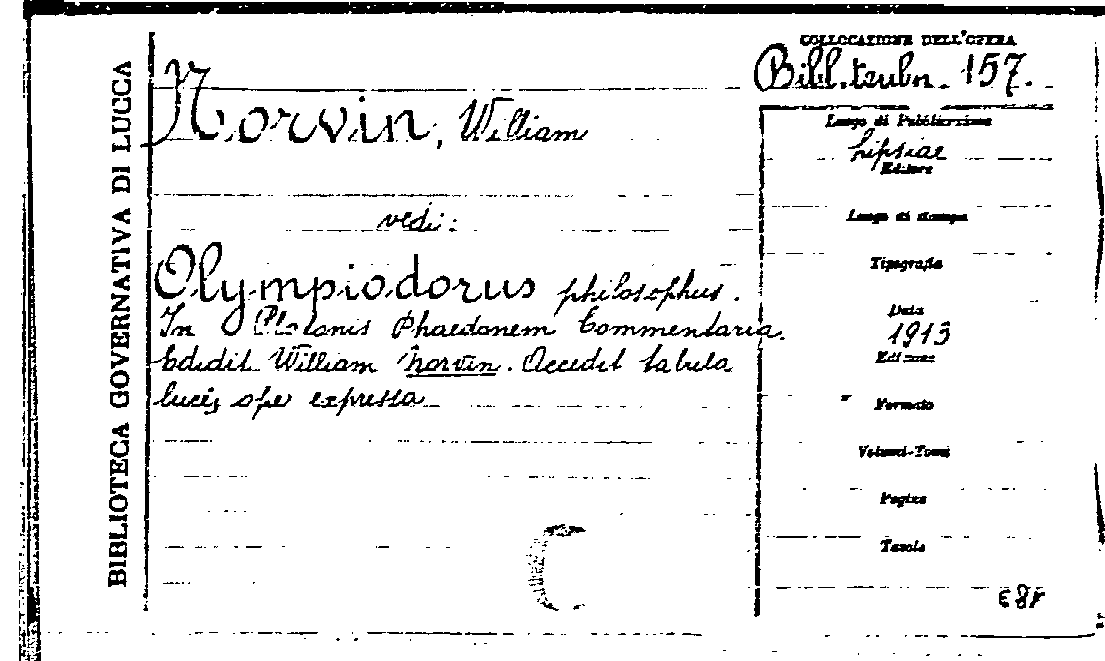 BIBLIOTECA GOVERNATIVA DI LUCCA
Norvin, William
vedi:
Olympiodorus philosophus.
In Platonis Phaedonem Commentaria.
Edidit William Norvin. Accedit tabula
lucis ope expressa
COLLOCAZIONE DELL'OPERA
Bibl. teubn. 157.
Luogo di Pubblicazione
Lipsiae
Editore
Luogo di stampa
Tipografia
Data
1913
Edizione
Formato
Volumi-Tomi
Pagine
Tavole